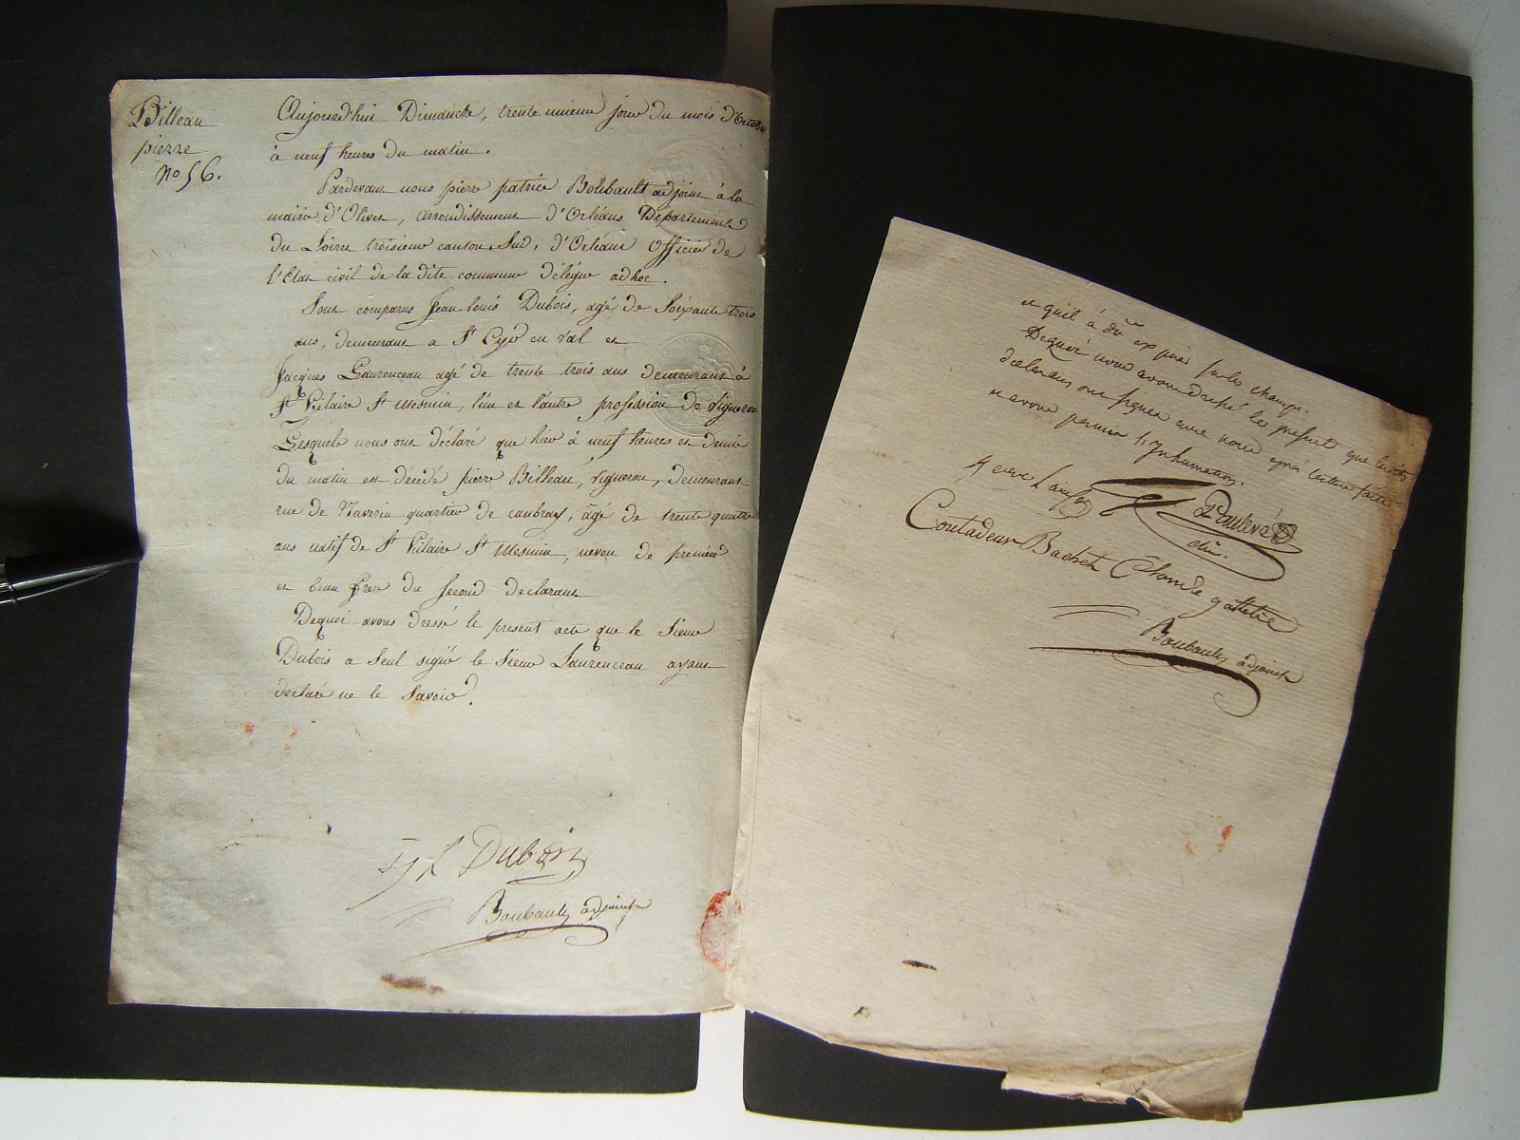 Billeau
pierre
No 56.
Aujourd'hui Dimanche, trente unieme jour du mois d'Octobre
à neuf heures du matin.
Pardevant nous pierre patrice Boubault adjoint à la
mairie d'Olivet, arrondissement d'Orléans Departement
du Loiret troisieme canton Sud, d'Orléans Officier de
l'Etat civil de la dite commune délégué adhoc.
Sont comparus Jean Louis Dubois, agé de Soixante trois
ans, demeurant a St Cyr en val et
Jacques Laurenceau agé de trente trois ans demeurant à
St hilaire St Mesmin, l'un et l'autre profession de Vigneron
Lesquels nous ont déclaré que hier à neuf heures et demie
du matin est décédé pierre Billeau, vigneron, demeurant
rue de Naverin quartier de caubray, âgé de trente quatre
ans natif de St hilaire St Mesmin, neveu de premier
et beau frere du second declarant
Dequoi avons dressé le present acte que le Sieur
Dubois a Seul signé le Sieur Laurenceau ayant
declaré ne le Savoir.
J L Dubois
Boubault adjoint
et quil à dû expirer sur les champs.
Dequoi nous avons dressé le present que lesdits
declarans ont signés avec nous après lecture faite
et avons permis l'Inhumation.
Poulevé
Contadeur Bachet Claude gatillice
Boubault adjoint